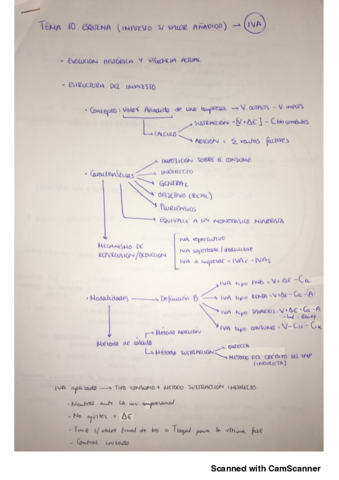 TEMA 10. ESQUEMA (IMPUESTO S/ VALOR AÑADIDO) → IVA
- EVOLUCIÓN HISTÓRICA Y VIGENCIA ACTUAL
- ESTRUCTURA DEL IMPUESTO
- Concepto: Valor Añadido de una empresa → V outputs - V inputs
CÁLCULO
SUSTRACCIÓN = [V+ΔE] - C
ADICIÓN = Σ rentas factores
- Características
IMPOSICIÓN SOBRE EL CONSUMO
INDIRECTO
GENERAL
OBJETIVO (REAL)
PLURIFÁSICO
EQUIVALE A UN MONOFÁSICO MINORISTA
MECANISMO DE REPERCUSIÓN/DEDUCCIÓN
IVA repercutido
IVA soportado/deducible
IVA a ingresar = IVAr - IVAs
- Modalidades
Definición B
IVA tipo PNB = V+ΔE-Cc
IVA tipo RENTA = V+ΔE-Cc-A
IVA tipo = V+ΔE-Cc-A
IVA tipo CONSUMO = V-Cc-Ck
Método de cálculo
MÉTODO ADICIÓN
MÉTODO SUSTRACCIÓN
DIRECTA
MÉTODO DEL CRÉDITO DEL IMP (INDIRECTA)
IVA aplicado → TIPO CONSUMO + MÉTODO SUSTRACCIÓN INDIRECTO
- Neutral ante la empresarial
- No ajustes ΔE
- Tipo s/ valor final de = T legal para la última fase
- Control
Scanned with CamScanner